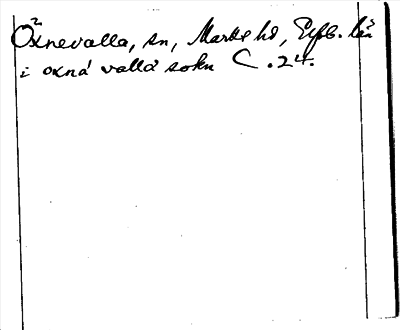 Öxnevalla, sn, Marks hd, Elfsb. län
i oxná vallá sokn C. 24.